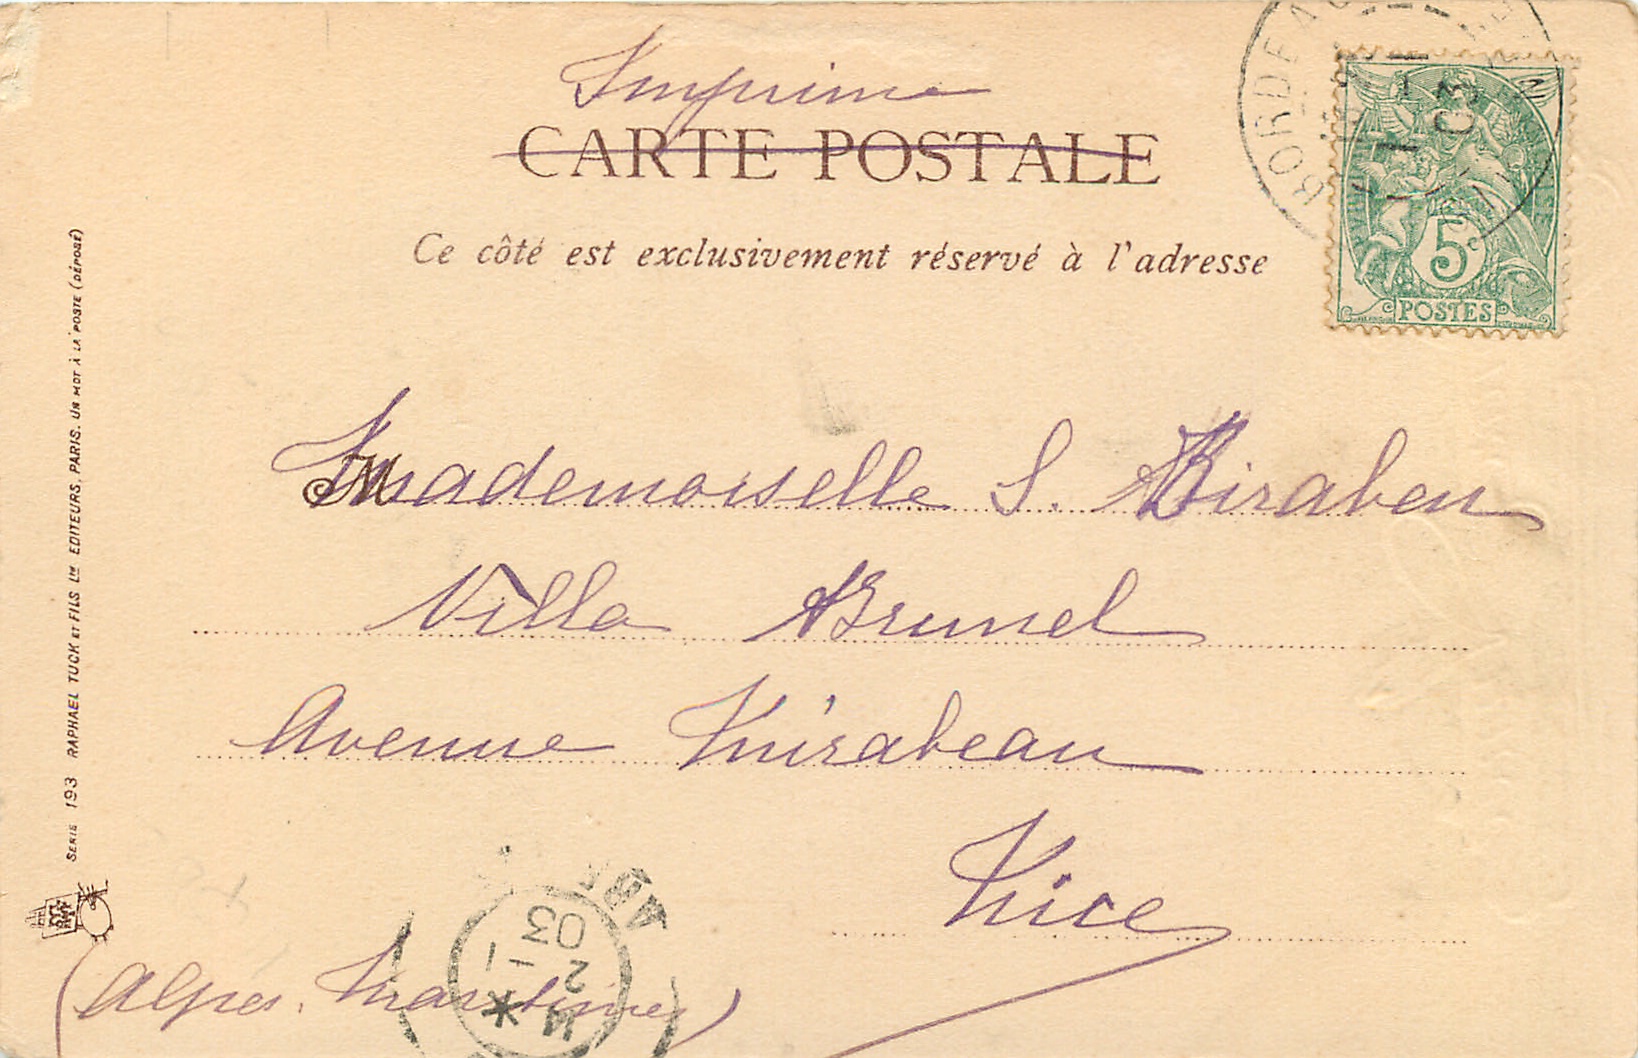 Imprimé
CARTE POSTALE
Ce côté est exclusivement réservé à l'adresse
BORDEAUX
03
5c
POSTES
Mademoiselle S. Biraben
Villa Brunel
Avenue Mirabeau
Nice
(Alpes Maritimes)
2 - 1
03
SERIE 193 RAPHAEL TUCK ET FILS LTD EDITEURS, PARIS. UN MOT À LA POSTE (DÉPOSÉ)